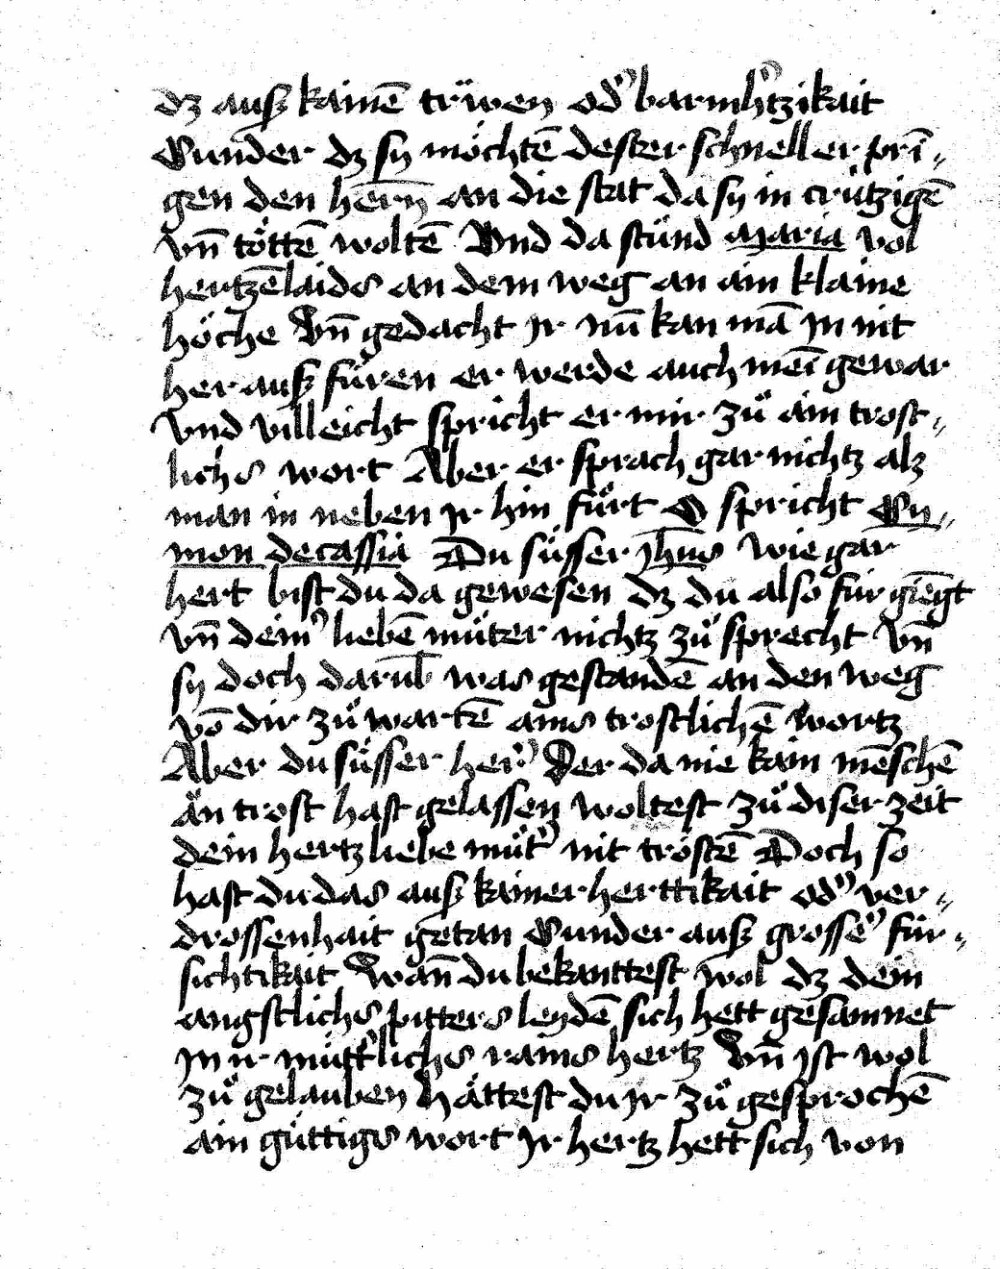 dz auß kainē trüwen od᾽ barmh᾽tzikait
Sunder dz sy möchtē dester schneller prī„
gen den herrn̄ an die stat da sy in crützigē
vn̄ töttē woltē Vnd da stůnd Maria vol
hertzēlaids an dem weg an ain klaine
höche Vn̄ gedacht Ir nū kan mā In nit
her auß füren er werde auch meī gewar
Vnd villeicht spricht er mir zů ain trost„
lichs wort Aber er sprach gar nichtz alz
man in neben Ir hin fůrt Es spricht Sy„
mon decassia Du süsser jh̄us wie gar
hert bist du da gewesen dz du also für giēgt
vn̄ deim᾽ liebē můter nichtz zů sprecht Vn̄
sy doch darūb was gestandē an den weg
vō dir zů wartē ains trostlichē wortz
Aber du süsser her᾽ Der da nie kain mēschē
ān trost hast gelassen woltest zů diser zeit
dein hertzliebe můt᾽ nit tröstē Doch so
hast du das auß kainer herttikait od᾽ ver„
drossenhait getan Sunder auß grosse᾽ für„
sichtikait Wan̄ du bekanttest wol dz dein
angstlichs pitters leydē sich hett gesamnet
In ir mütt᾽lichs rains hertz Vn̄ ist wol
zů gelauben Hättest du Ir zů gesprochē
ain güttigs wort Ir hertz hett sich von